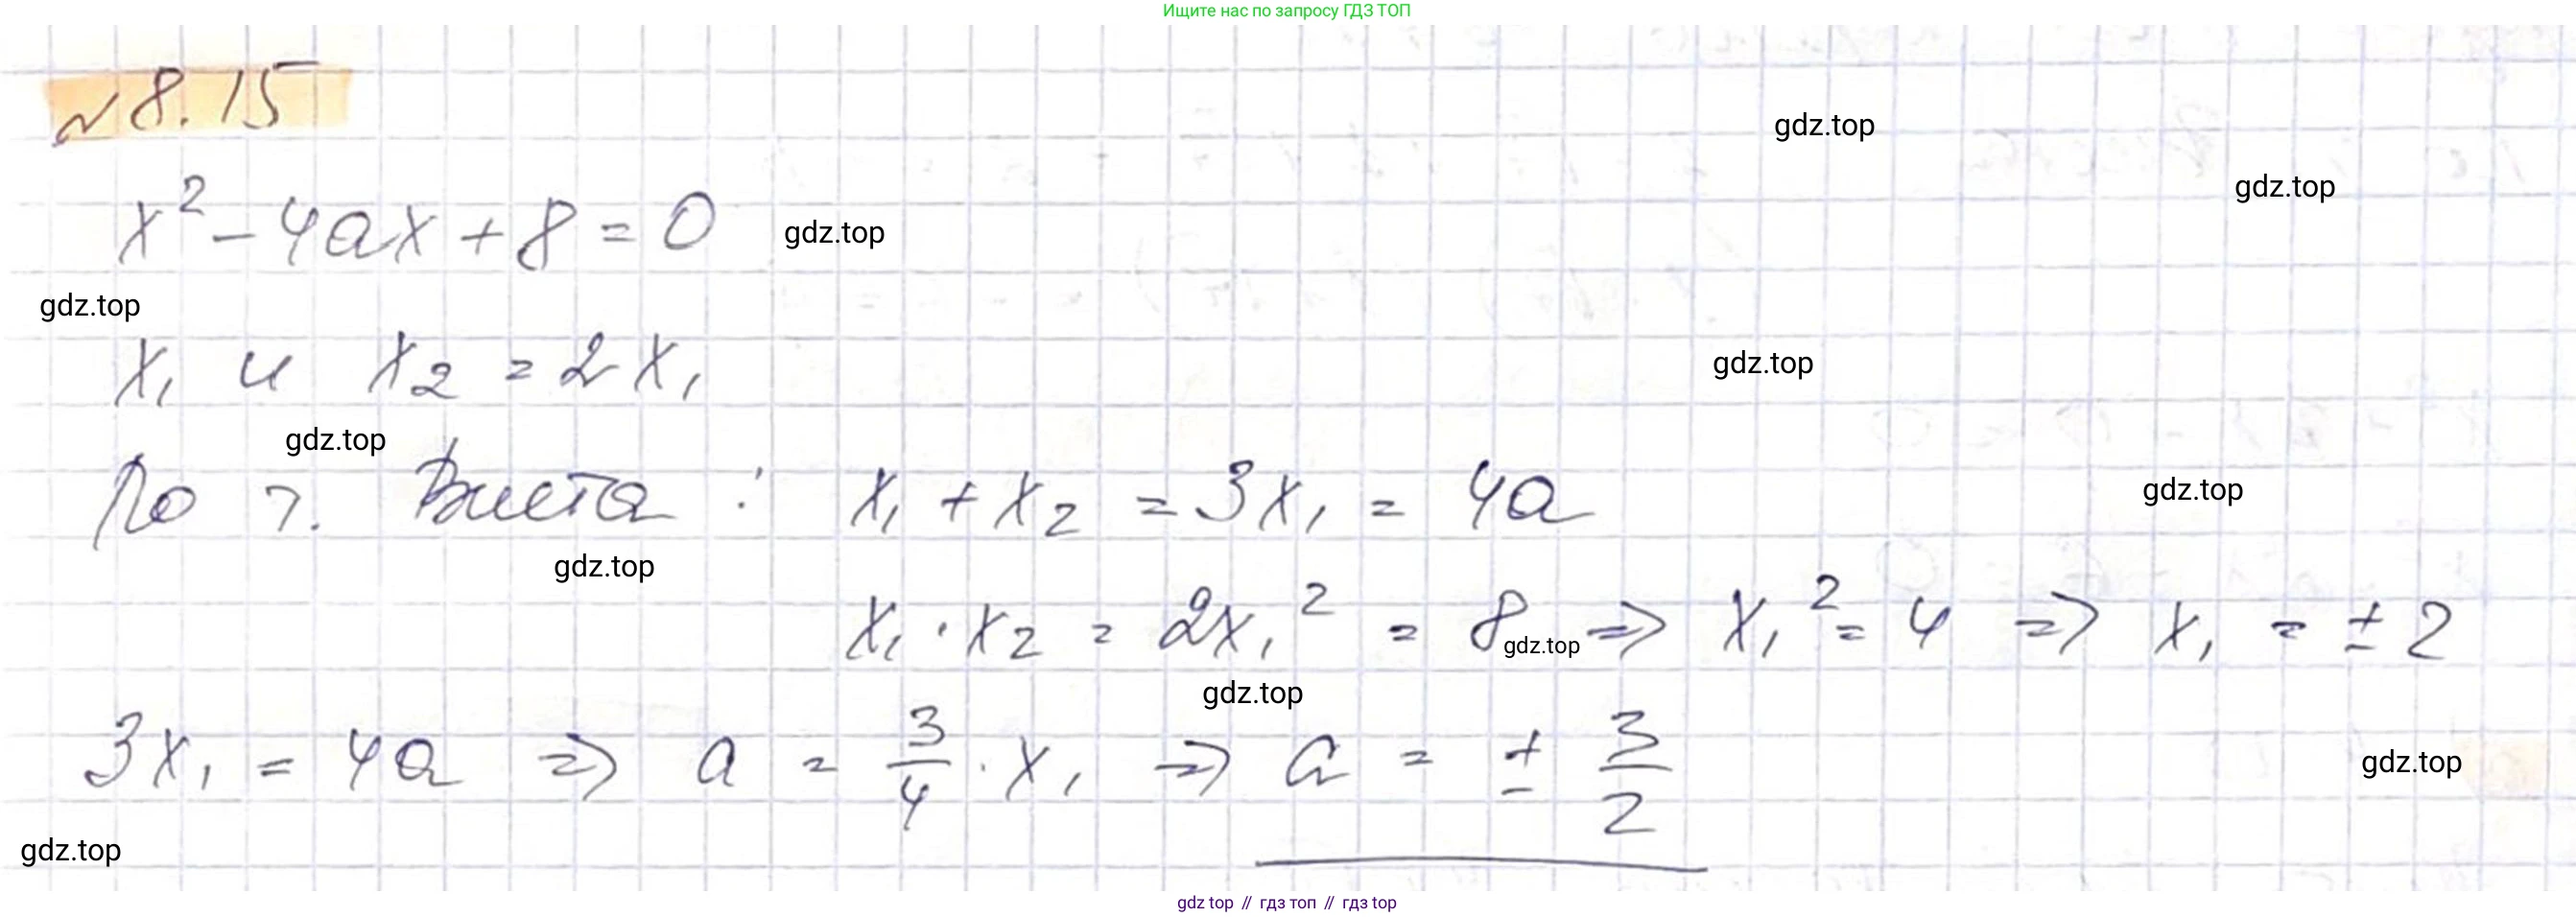 Ищите нас по запросу ГДЗ ТОП
№ 8.15
gdz.top
gdz.top
x² - 4ax + 8 = 0
gdz.top
gdz.top
x₁ и x₂ = 2x₁
gdz.top
gdz.top
По т. Виета: x₁ + x₂ = 3x₁ = 4a
gdz.top
gdz.top
x₁ · x₂ = 2x₁² = 8 => x₁² = 4 => x₁ = ± 2
gdz.top
gdz.top
3x₁ = 4a => a = 3/4 · x₁ => a = ± 3/2
gdz.top
gdz.top
gdz top // гдз топ // гдз top